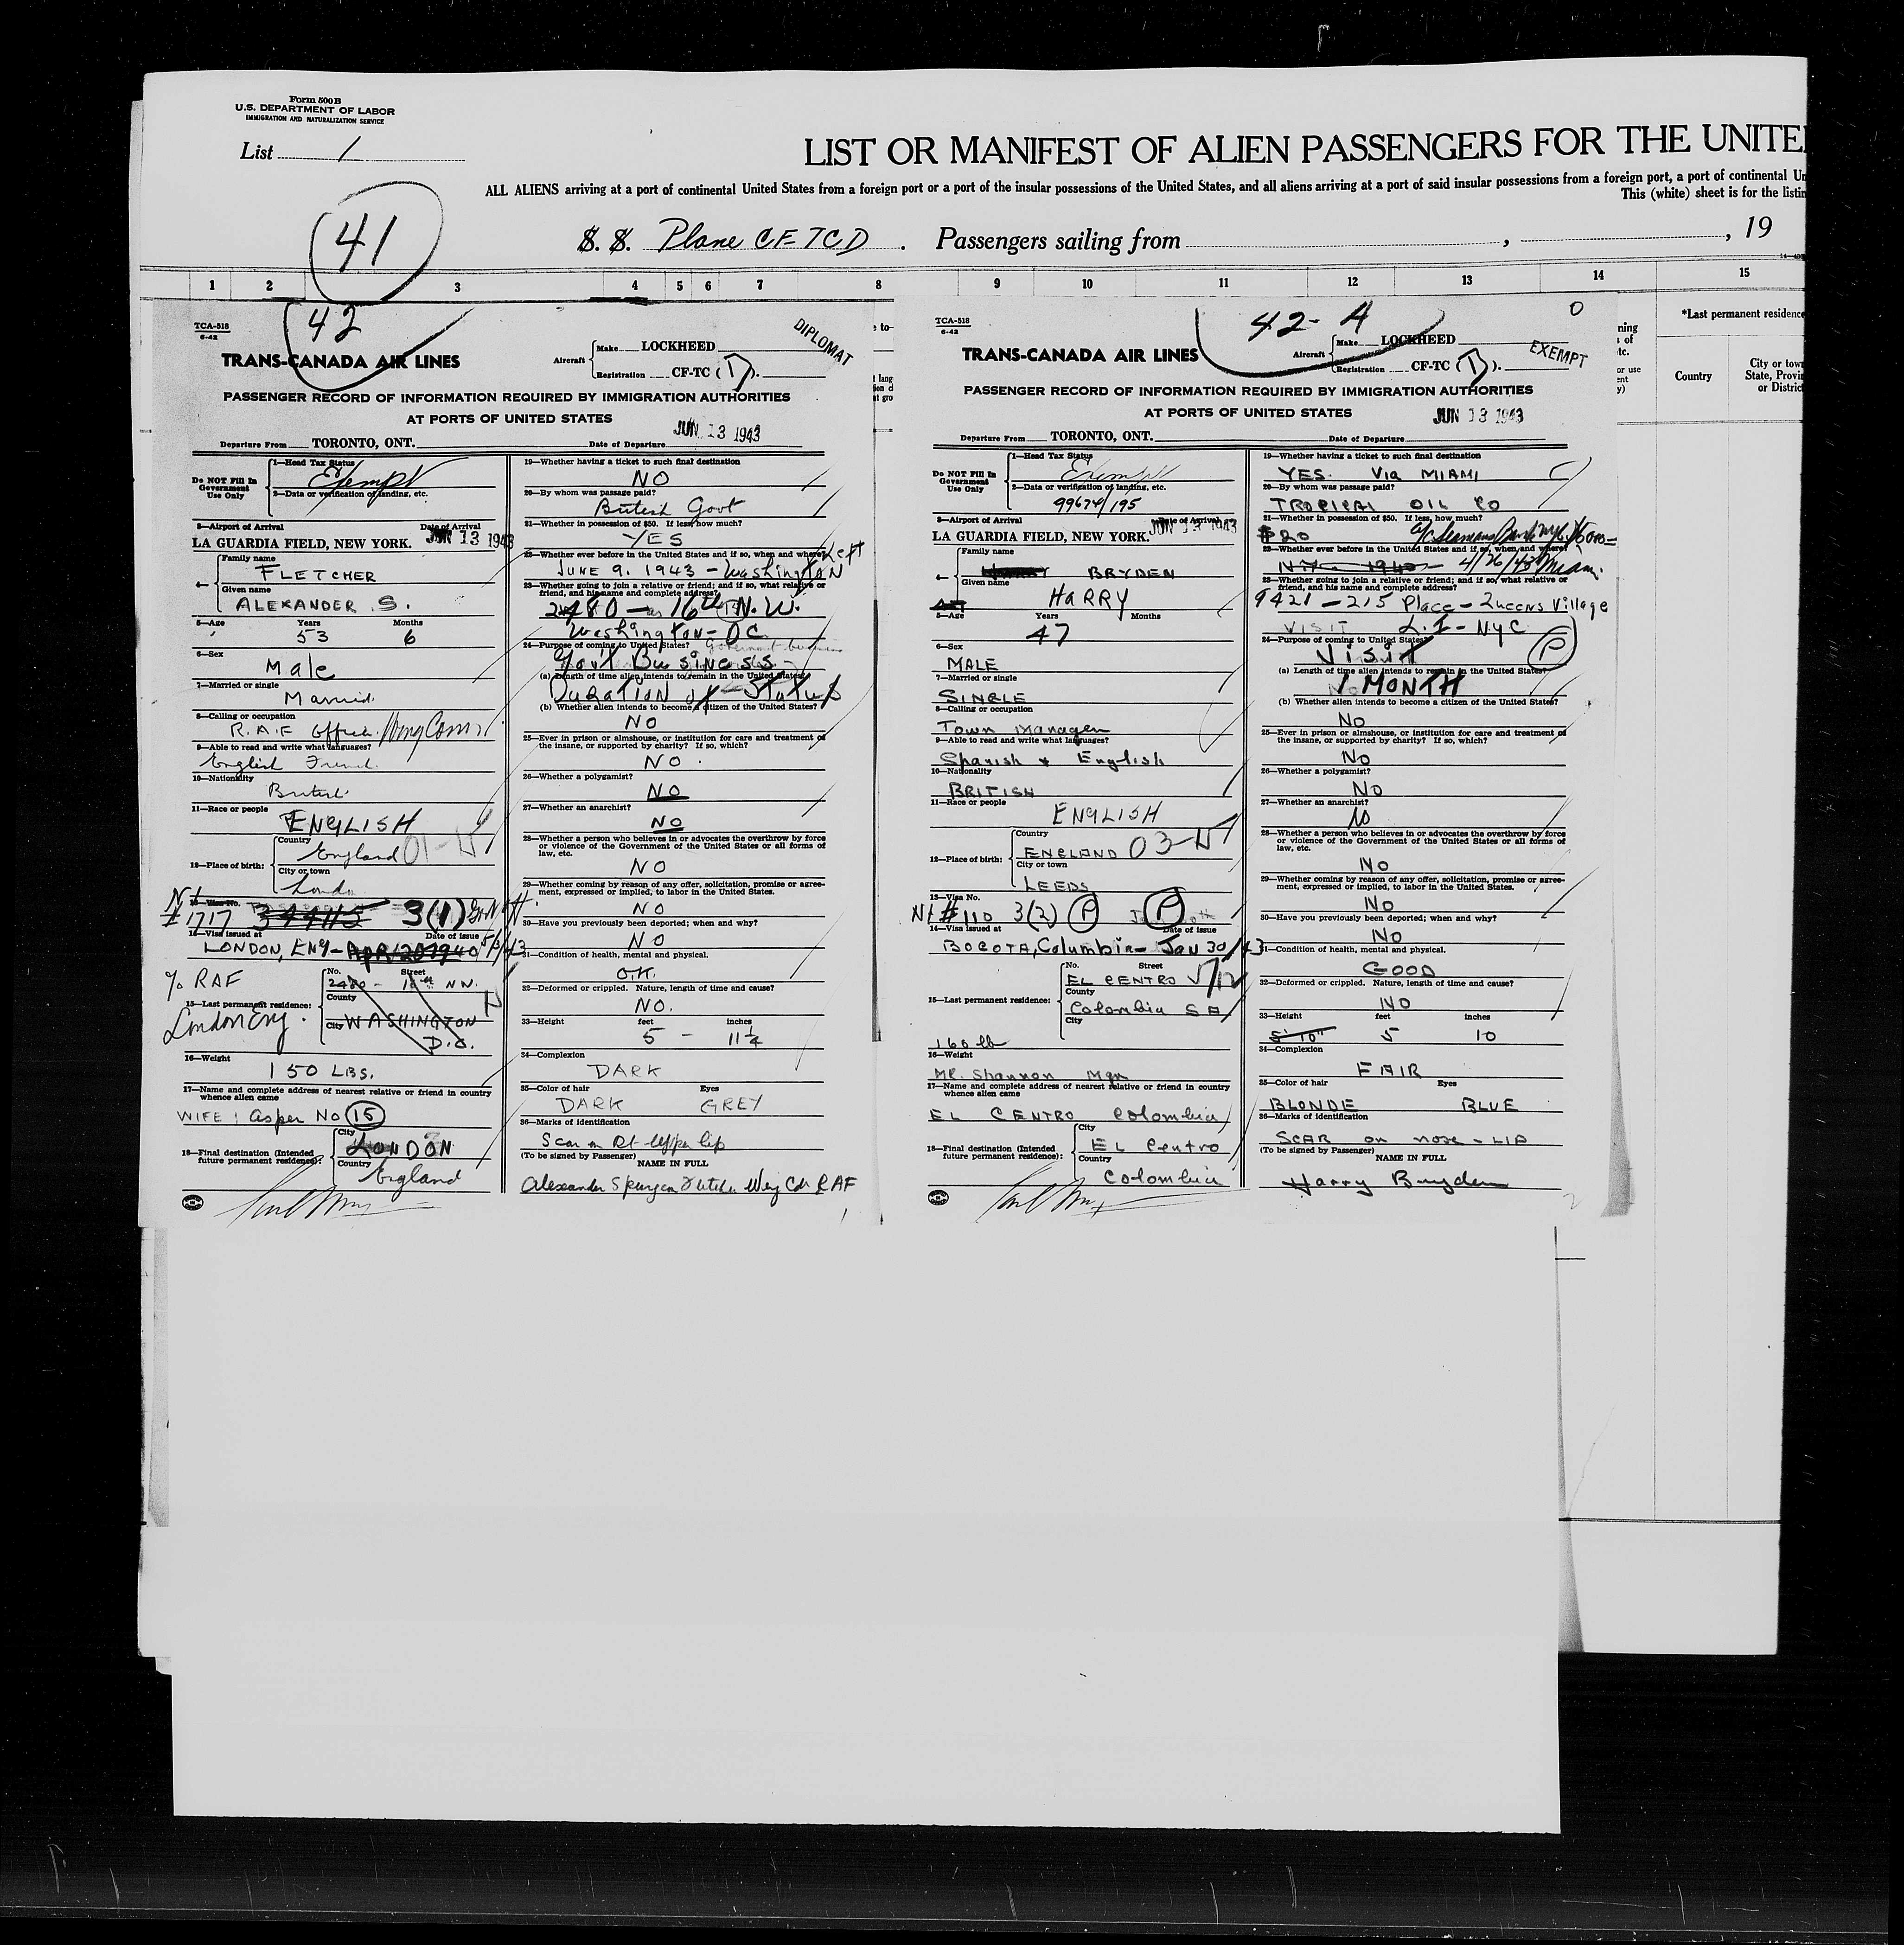 Form 500B
U.S. DEPARTMENT OF LABOR
IMMIGRATION AND NATURALIZATION SERVICE
List 1
LIST OR MANIFEST OF ALIEN PASSENGERS FOR THE UNITE
ALL ALIENS arriving at a port of continental United States from a foreign port or a port of the insular possessions of the United States, and all aliens arriving at a port of said insular possessions from a foreign port, a port of continental Un
This (white) sheet is for the listin
41
S. S. Plane CF-TCD . Passengers sailing from , , 19
1 2 3 4 5 6 7 8 9 10 11 12 13 14 15
*Last permanent residence
Country
City or town
State, Provin
or District
42
TCA-518
6-42
DIPLOMAT
TRANS-CANADA AIR LINES
Aircraft Make LOCKHEED
Registration CF-TC (D).
PASSENGER RECORD OF INFORMATION REQUIRED BY IMMIGRATION AUTHORITIES
AT PORTS OF UNITED STATES
JUN 13 1943
Departure From TORONTO, ONT. Date of Departure
Do NOT Fill In Government Use Only
1—Head Tax Status
Exempt
2—Data or verification of landing, etc.
3—Airport of Arrival Date of Arrival
LA GUARDIA FIELD, NEW YORK. JUN 13 1943
4—
Family name
FLETCHER
Given name
ALEXANDER S.
5—Age Years Months
53 6
6—Sex
Male
7—Married or single
Married
8—Calling or occupation
R.A.F Officer Wing Comdr
9—Able to read and write what languages?
English French
10—Nationality
British
11—Race or people
ENGLISH
12—Place of birth:
Country
England 01-W
City or town
London
13—Visa No.
#1717 344115 3(1)
14—Visa issued at Date of issue
LONDON, ENG- Apr 20 1940
% RAF
London Eng.
15—Last permanent residence:
No. Street
2480 - 16th NW.
County
City WASHINGTON
D.C.
16—Weight
150 LBS.
17—Name and complete address of nearest relative or friend in country
whence alien came
WIFE: asper No 15
18—Final destination (Intended
future permanent residence):
City
LONDON
Country
England
19—Whether having a ticket to such final destination
NO
20—By whom was passage paid?
British Govt
21—Whether in possession of $50. If less, how much?
YES
22—Whether ever before in the United States and if so, when and where?
Left
JUNE 9. 1943 - Washington
23—Whether going to join a relative or friend; and if so, what relative or
friend, and his name and complete address?
2480 - 16th N.W.
Washington - DC
24—Purpose of coming to United States?
Gov't Business
(a) Length of time alien intends to remain in the United States?
Duration of Status
(b) Whether alien intends to become a citizen of the United States?
NO
25—Ever in prison or almshouse, or institution for care and treatment of
the insane, or supported by charity? If so, which?
NO
26—Whether a polygamist?
NO
27—Whether an anarchist?
NO
28—Whether a person who believes in or advocates the overthrow by force
or violence of the Government of the United States or all forms of
law, etc.
NO
29—Whether coming by reason of any offer, solicitation, promise or agree-
ment, expressed or implied, to labor in the United States.
NO
30—Have you previously been deported; when and why?
NO
31—Condition of health, mental and physical.
O.K.
32—Deformed or crippled. Nature, length of time and cause?
NO.
33—Height feet inches
5 - 11 1/4
34—Complexion
DARK
35—Color of hair Eyes
DARK GREY
36—Marks of identification
Scar on Rt upper lip
(To be signed by Passenger)
NAME IN FULL
Alexander Spurgeon Fletcher Wing Cdr RAF
42-A
0
TCA-518
6-42
EXEMPT
TRANS-CANADA AIR LINES
Aircraft Make LOCKHEED
Registration CF-TC (D).
PASSENGER RECORD OF INFORMATION REQUIRED BY IMMIGRATION AUTHORITIES
AT PORTS OF UNITED STATES
JUN 13 1943
Departure From TORONTO, ONT. Date of Departure
Do NOT Fill In Government Use Only
1—Head Tax Status
Exempt
2—Data or verification of landing, etc.
99674/195
3—Airport of Arrival Date of Arrival
LA GUARDIA FIELD, NEW YORK. JUN 13 1943
4—
Family name
BRYDEN
Given name
HARRY
5—Age Years Months
47
6—Sex
MALE
7—Married or single
SINGLE
8—Calling or occupation
Town Manager
9—Able to read and write what languages?
Spanish & English
10—Nationality
BRITISH
11—Race or people
ENGLISH
12—Place of birth:
Country
ENGLAND 03-W
City or town
LEEDS
13—Visa No.
#110 3(2) P P
14—Visa issued at Date of issue
BOGOTA, Columbia - Jan 30/43
15—Last permanent residence:
No. Street
EL CENTRO
County
Colombia SA
City
160 lb
16—Weight
MR. Shannon Mgr
17—Name and complete address of nearest relative or friend in country
whence alien came
EL CENTRO Colombia
18—Final destination (Intended
future permanent residence):
City
EL Centro
Country
Colombia
19—Whether having a ticket to such final destination
YES. Via MIAMI
20—By whom was passage paid?
TROPICAL OIL CO
21—Whether in possession of $50. If less, how much?
$20
22—Whether ever before in the United States and if so, when and where?
4/26/43 Miami.
23—Whether going to join a relative or friend; and if so, what relative or
friend, and his name and complete address?
9421 - 215 Place - Queens Village
VISIT L.I - NYC
24—Purpose of coming to United States?
Visit P
(a) Length of time alien intends to remain in the United States?
1 MONTH
(b) Whether alien intends to become a citizen of the United States?
No
25—Ever in prison or almshouse, or institution for care and treatment of
the insane, or supported by charity? If so, which?
No
26—Whether a polygamist?
No
27—Whether an anarchist?
No
28—Whether a person who believes in or advocates the overthrow by force
or violence of the Government of the United States or all forms of
law, etc.
NO
29—Whether coming by reason of any offer, solicitation, promise or agree-
ment, expressed or implied, to labor in the United States.
No
30—Have you previously been deported; when and why?
No
31—Condition of health, mental and physical.
GOOD
32—Deformed or crippled. Nature, length of time and cause?
NO
33—Height feet inches
5' 10" 5 10
34—Complexion
FAIR
35—Color of hair Eyes
BLONDE BLUE
36—Marks of identification
SCAR on nose - LIP
(To be signed by Passenger)
NAME IN FULL
Harry Bryden